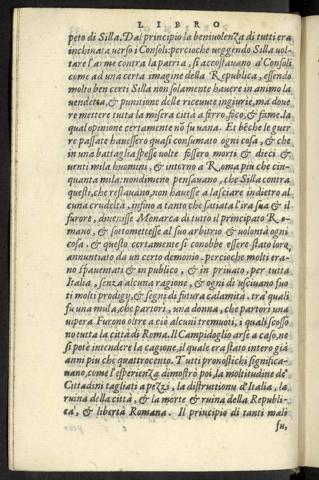 LIBRO
peto di Silla. Dal principio la beniuolenza di tutti era
inchinata uerso i Consoli: percioche ueggendo Silla uol-
tare l'arme contra la patria, si accostauano à Consoli
come ad una certa imagine della Republica, essendo
molto ben certi Silla non solamente hauere in animo la
uendetta, & punitione delle riceuute ingiurie, ma doue
re mettere tutta la misera città a ferro, foco, & fiāme, la
qual opinione certamente nō fu uana. Et bēche le guer
re passate hauessero quasi consumato ogni cosa, & che
in una battaglia spesse uolte fossero morti & dieci &
uenti mila huomini, & intorno à Roma più che cin-
quanta mila: nondimeno pensauano, che Silla contra
questi, che restauano, non hauesse a lasciare indietro al
cuna crudeltà, infino a tanto che satiata l'ira sua & il
furore, diuenisse Monarca di tutto il principato Ro-
mano, & sottomettesse al suo arbitrio & uolontà ogni
cosa. & questo certamente si conobbe essere stato loro
annuntiato da un certo demonio. percioche molti era-
no spauentati & in publico, & in priuato, per tutta
Italia, senza alcuna ragione, & ogni dì usciuano fuo
ri molti prodigij, & segni di futura calamità. tra quali
fu una mula, che partorì, una donna, che partorì una
uipera Furono oltre a ciò alcuni tremuoti, i quali scosso
no tutta la città di Roma. Il Campidoglio arse a caso, ne
si potè intendere la cagione, il quale era stato intero già
anni piu che quattrocento. Tutti pronostichi significa-
uano, come l'esperienza dimostrò poi, la moltitudine de'
Cittadini tagliati a pezzi, la distruttione d'Italia, la
ruina della città, & la morte & ruina della Republi-
ca, & libertà Romana. Il principio di tanti mali
fu,